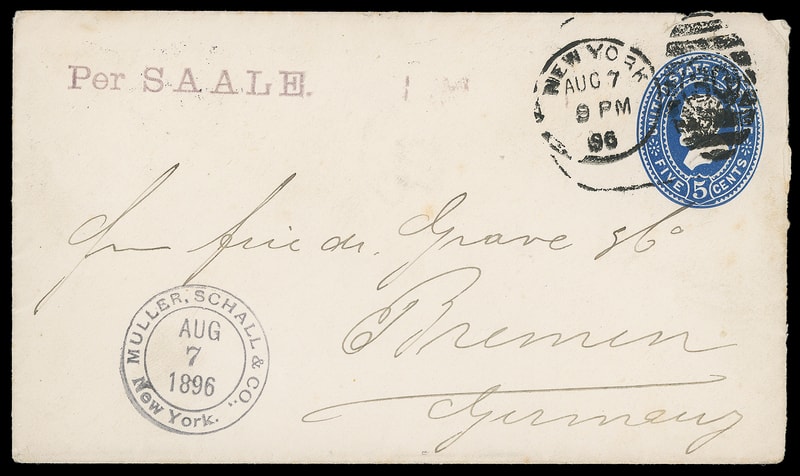 Per SAALE.
NEW YORK
AUG 7
9 PM
96
UNITED STATES
FIVE 5 CENTS
Friedr. Grave & Co
Bremen
Germany
MULLER, SCHALL & CO.,
AUG
7
1896
New York.